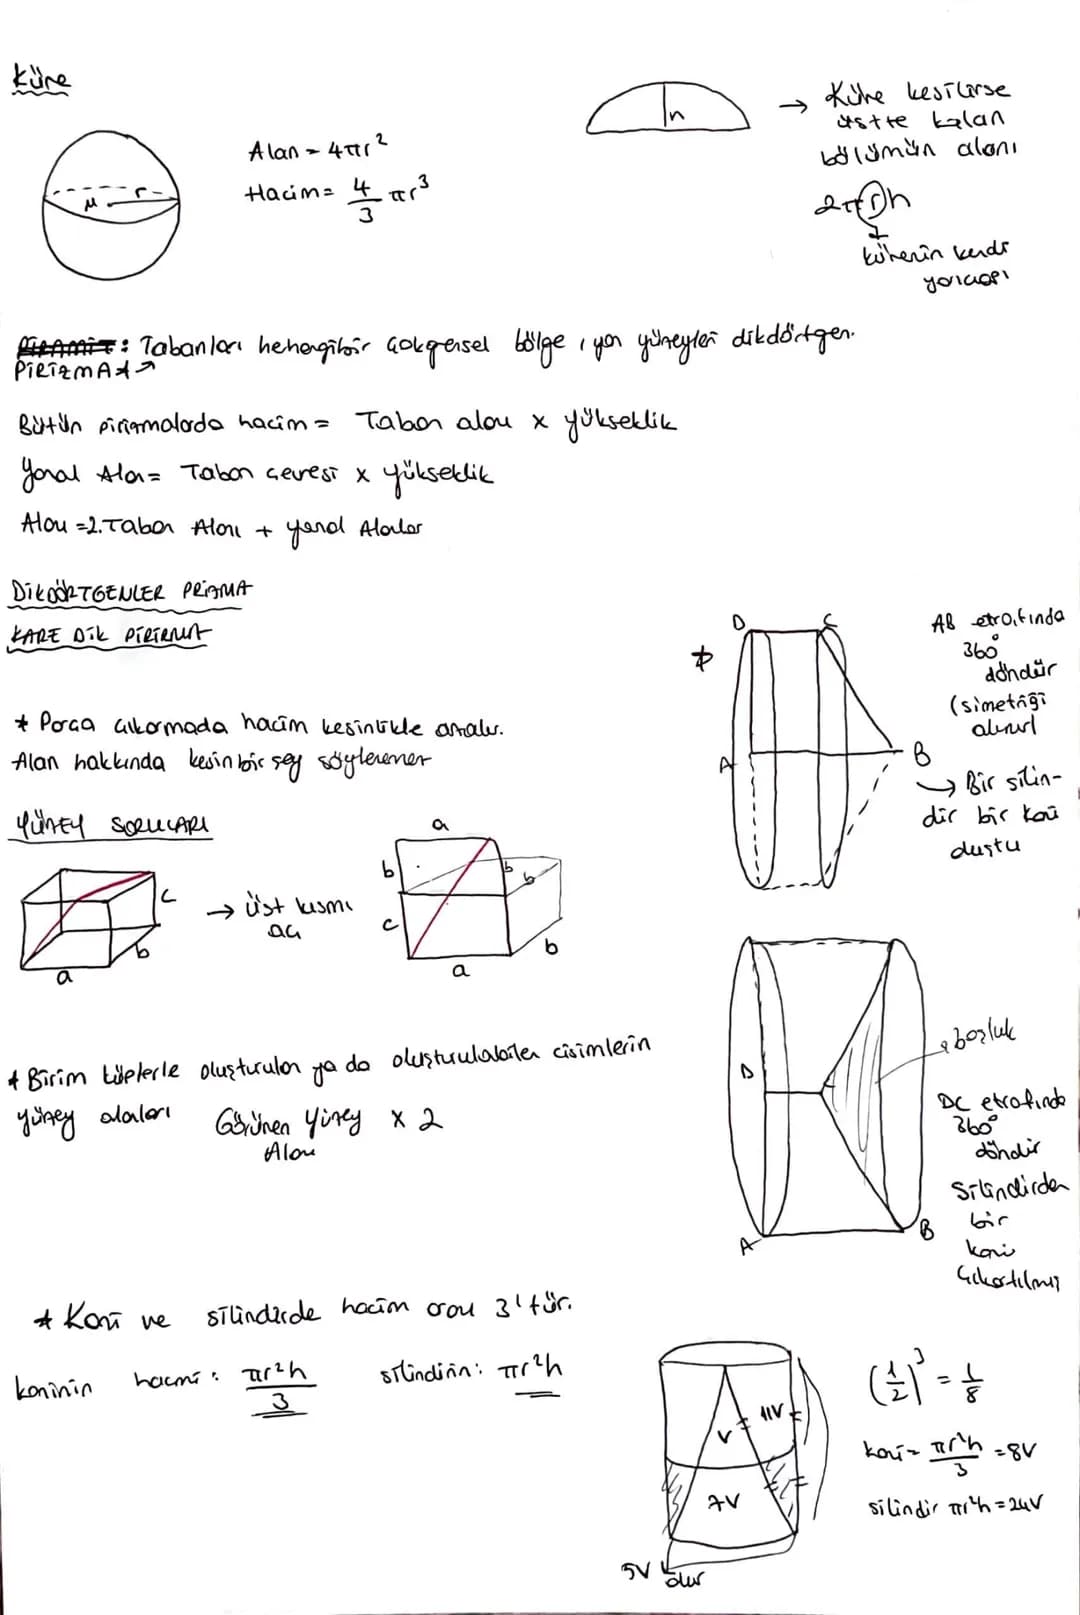 Küre
r
M
Alan = 4πr²
Hacim = 4/3 πr³
h
→ Küre kesilirse
üstte kalan
bölümün alanı
2πrh
kürenin kendi
yarıçapı
PİRAMİT: Tabanları herhangibir çokgensel bölge, yan yüzeyleri dikdörtgen.
PİRİZMA
Bütün pirizmalarda hacim = Taban alanı x yükseklik
Yanal Alan = Taban çevresi x yükseklik
Alanı = 2.Taban Alanı + yanal Alanlar
DİKDÖRTGENLER PRİZMA
KARE DİK PİRİZMA
* Parça çıkarmada hacim kesinlikle azalır.
Alan hakkında kesin bir şey söylenemez
YÜZEY SORULARI
a
b
c
→ üst kısmı
aç
a
b
b
b
c
b
a
* Birim küplerle oluşturulan ya da oluşturulabilen cisimlerin
yüzey alanları Görünen Yüzey x 2
Alanı
* Koni ve silindirde hacim oranı 3'tür.
koninin hacmi: πr²h/3 silindirin: πr²h
*
D
C
A
B
AB etrafında
360°
döndür
(simetriği
alınır)
→ Bir silin-
dir bir koni
oluştu
D
A
B
boşluk
DC etrafında
360°
döndür
Silindirden
bir
koni
çıkartılmış
V
11V
7V
5V olur
(1/2)³ = 1/8
koni = πr²h/3 = 8V
silindir πr²h = 24V